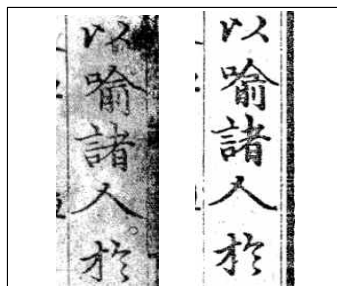 以喻諸人於
以喻諸人於